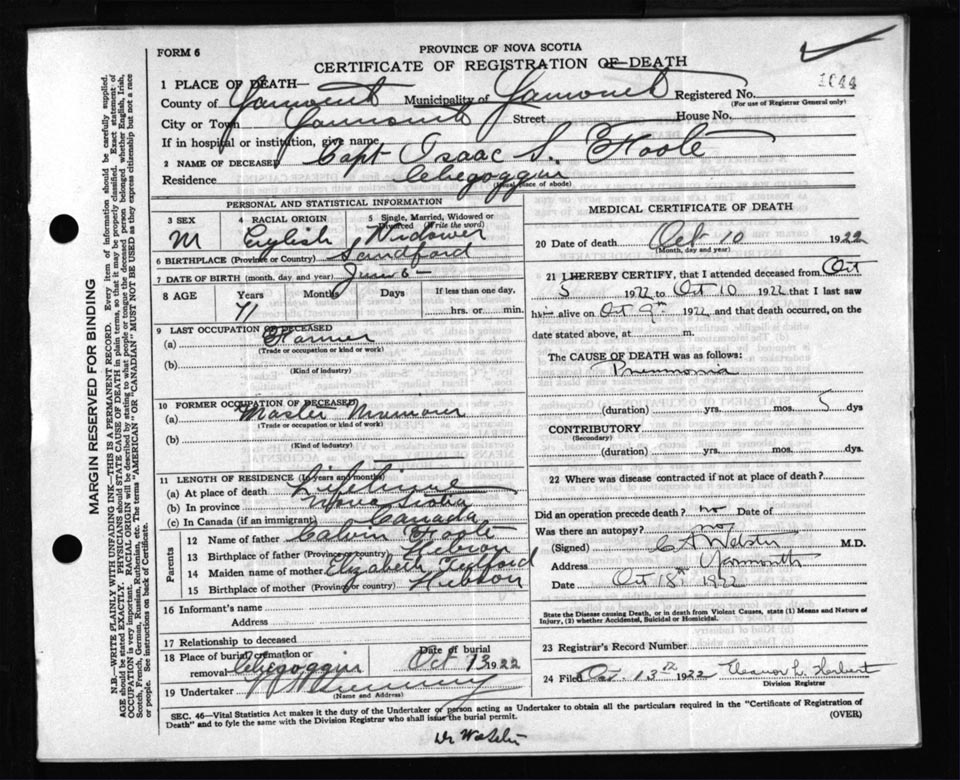 PROVINCE OF NOVA SCOTIA
FORM 6
CERTIFICATE OF REGISTRATION OF DEATH
1044
1 PLACE OF DEATH—
County of Yarmouth Municipality of Yarmouth Registered No.
(For use of Registrar General only)
City or Town Yarmouth Street House No.
If in hospital or institution, give name
2 NAME OF DECEASED Capt Isaac S. Foote
Residence Chegoggin
(Usual place of abode)
PERSONAL AND STATISTICAL INFORMATION
3 SEX M
4 RACIAL ORIGIN English
5 Single, Married, Widowed or Divorced (Write the word) Widower
6 BIRTHPLACE (Province or Country) Sandford
7 DATE OF BIRTH (month, day and year) June 6 —
8 AGE Years Months Days If less than one day,
71 hrs. or min.
9 LAST OCCUPATION OF DECEASED
(a) Farmer
(Trade or occupation or kind of work)
(b)
(Kind of industry)
10 FORMER OCCUPATION OF DECEASED
(a) Master Mariner
(Trade or occupation or kind of work)
(b)
(Kind of industry)
11 LENGTH OF RESIDENCE (in years and months)
(a) At place of death Lifetime
(b) In province Nova Scotia
(c) In Canada (if an immigrant) Canada
Parents
12 Name of father Calvin Foote
13 Birthplace of father (Province or country) Hebron
14 Maiden name of mother Elizabeth
15 Birthplace of mother (Province or country) Hebron
16 Informant's name
Address
17 Relationship to deceased
18 Place of burial, cremation or removal Chegoggin
Date of burial Oct 13 1922
19 Undertaker
(Name and Address)
MEDICAL CERTIFICATE OF DEATH
20 Date of death Oct 10 1922
(Month, day and year)
21 I HEREBY CERTIFY, that I attended deceased from Oct
5 1922 to Oct 10 1922 that I last saw
him alive on Oct 9th 1922 and that death occurred, on the
date stated above, at m.
The CAUSE OF DEATH was as follows:
Pneumonia
(duration) yrs. mos. 5 dys
CONTRIBUTORY
(Secondary)
(duration) yrs. mos. dys.
22 Where was disease contracted if not at place of death?
Did an operation precede death? no Date of
Was there an autopsy? no
(Signed) C A Webster M.D.
Address Yarmouth
Date Oct 18th 1922
State the Disease causing Death, or in death from Violent Causes, state (1) Means and Nature of
Injury, (2) whether Accidental, Suicidal or Homicidal.
23 Registrar's Record Number
24 Filed Oct. 13th 1922 Eleanor L. Herbert
Division Registrar
SEC. 46—Vital Statistics Act makes it the duty of the Undertaker or person acting as Undertaker to obtain all the particulars required in the "Certificate of Registration of
Death" and to fyle the same with the Division Registrar who shall issue the burial permit.
(OVER)
Dr Webster
MARGIN RESERVED FOR BINDING
N.B.—WRITE PLAINLY WITH UNFADING INK—THIS IS A PERMANENT RECORD. Every item of information should be carefully supplied.
AGE should be stated EXACTLY. PHYSICIANS should STATE CAUSE OF DEATH in plain terms, so that it may be properly classified. Exact statement of
OCCUPATION is very important. RACIAL ORIGIN will be described by stating to what people or tongue the deceased person belonged whether English, Irish,
Scotch, French, German, Russian, Ruthenian, etc. The terms "AMERICAN" OR "CANADIAN" MUST NOT BE USED as they express citizenship but not a race
or people. See instructions on back of Certificate.